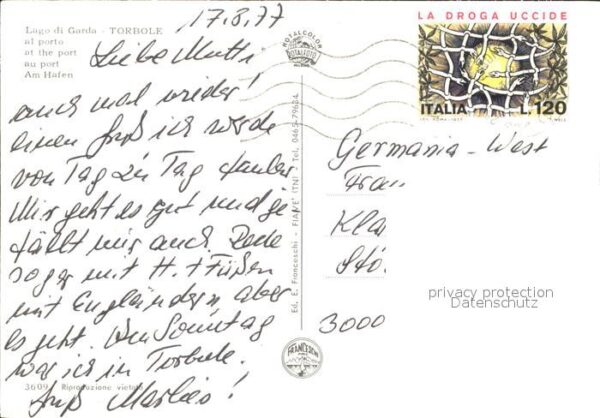 17.8.77
Lago di Garda - TORBOLE
al porto
at the port
au port
Am Hafen
Liebe Mutti
auch mal wieder
einen Gruß ich werde
von Tag zu Tag fauler
Mir geht es gut und ge
fällt mir auch. Rede
sogar mit H. + Füßen
mit Engländern aber
es geht. Am Sonntag
war ich in Torbole.
Gruß Marlies!
3609 Riproduzione vietata
ROTALCOLOR
ROTALFOTO
MILANO
Ed. E. Franceschi - FIAVE' (TN) - Tel. 0465-79624
FRANCESCHI
LA DROGA UCCIDE
ITALIA L.120
Germania-West
Frau
Kla
3000
privacy protection
Datenschutz